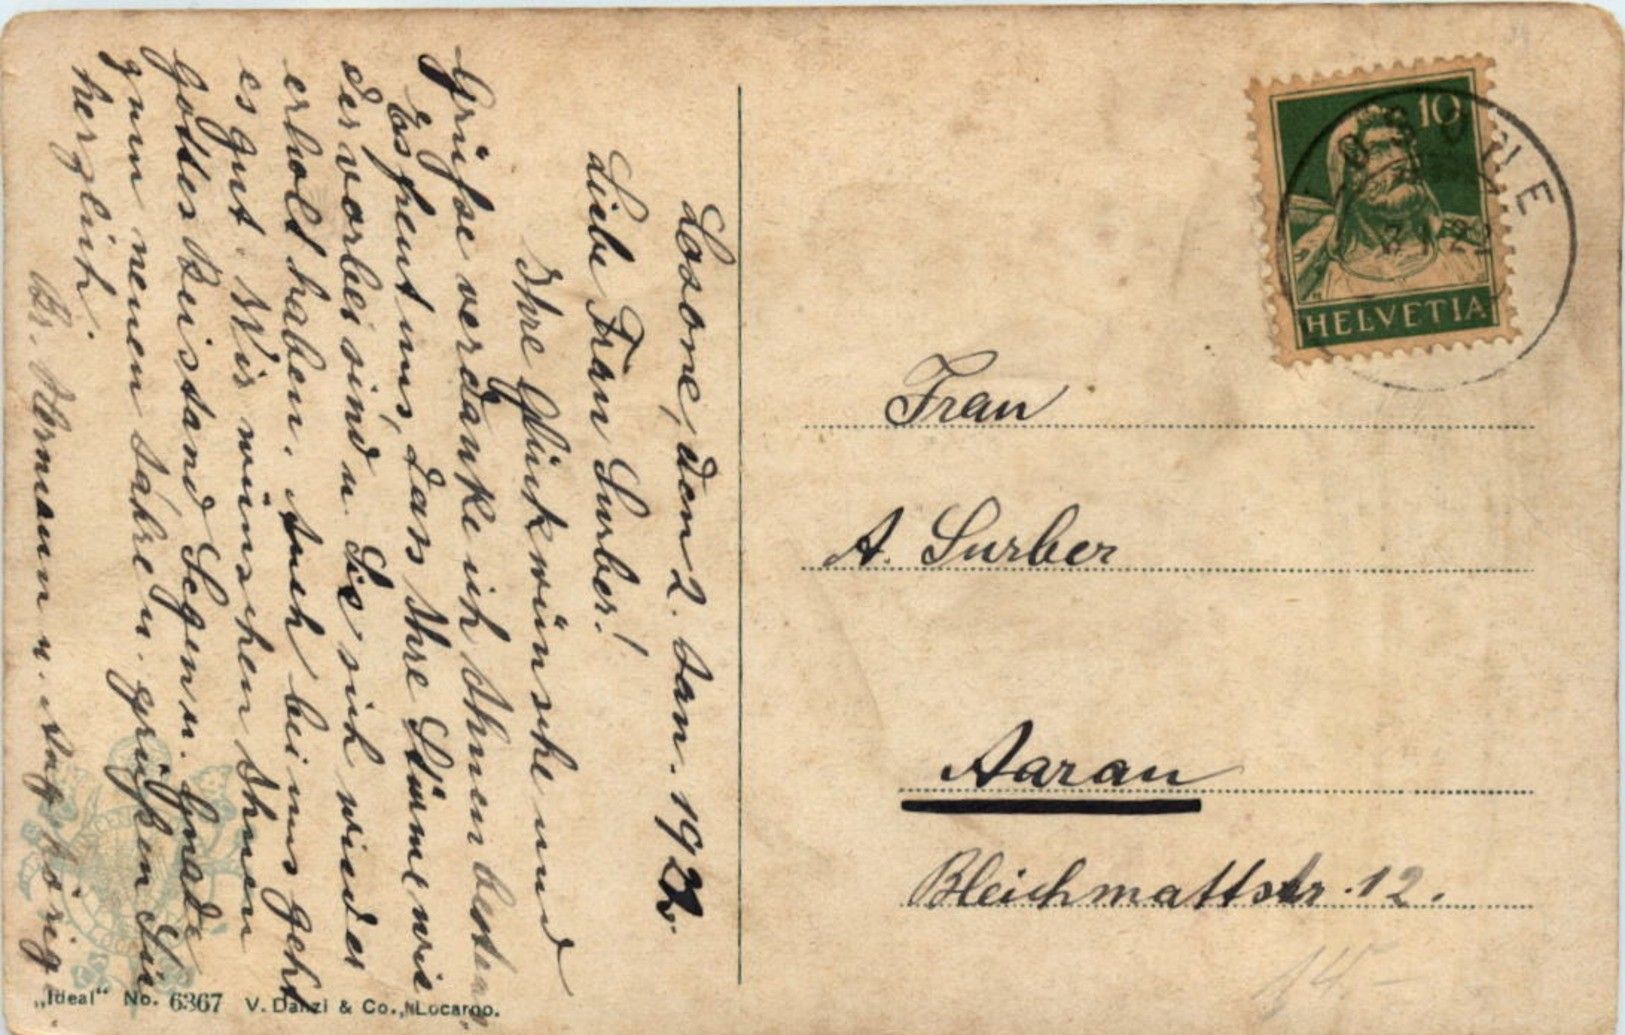 Losone, den 2. Jan. 1922.
Liebe Frau Surber!
Ihre Glückwünsche und
Grüsse verdanke ich Ihnen bestens
Es freut uns, dass Ihre Stürme wie
der vorbei sind u. Sie sich wieder
erholt haben. Auch bei uns geht
es gut. Wir wünschen Ihnen
Gottes Beistand Segen u. Gnade
zum neuen Jahre u. grüßen Sie
herzlich.
Br. Hermann u. Angehörige.
„Ideal“ No. 6367 V. Danzi & Co., Locarno.
10
HELVETIA
LOSONE
Frau
A. Surber
Aarau
Bleichmattstr. 12.
14.-